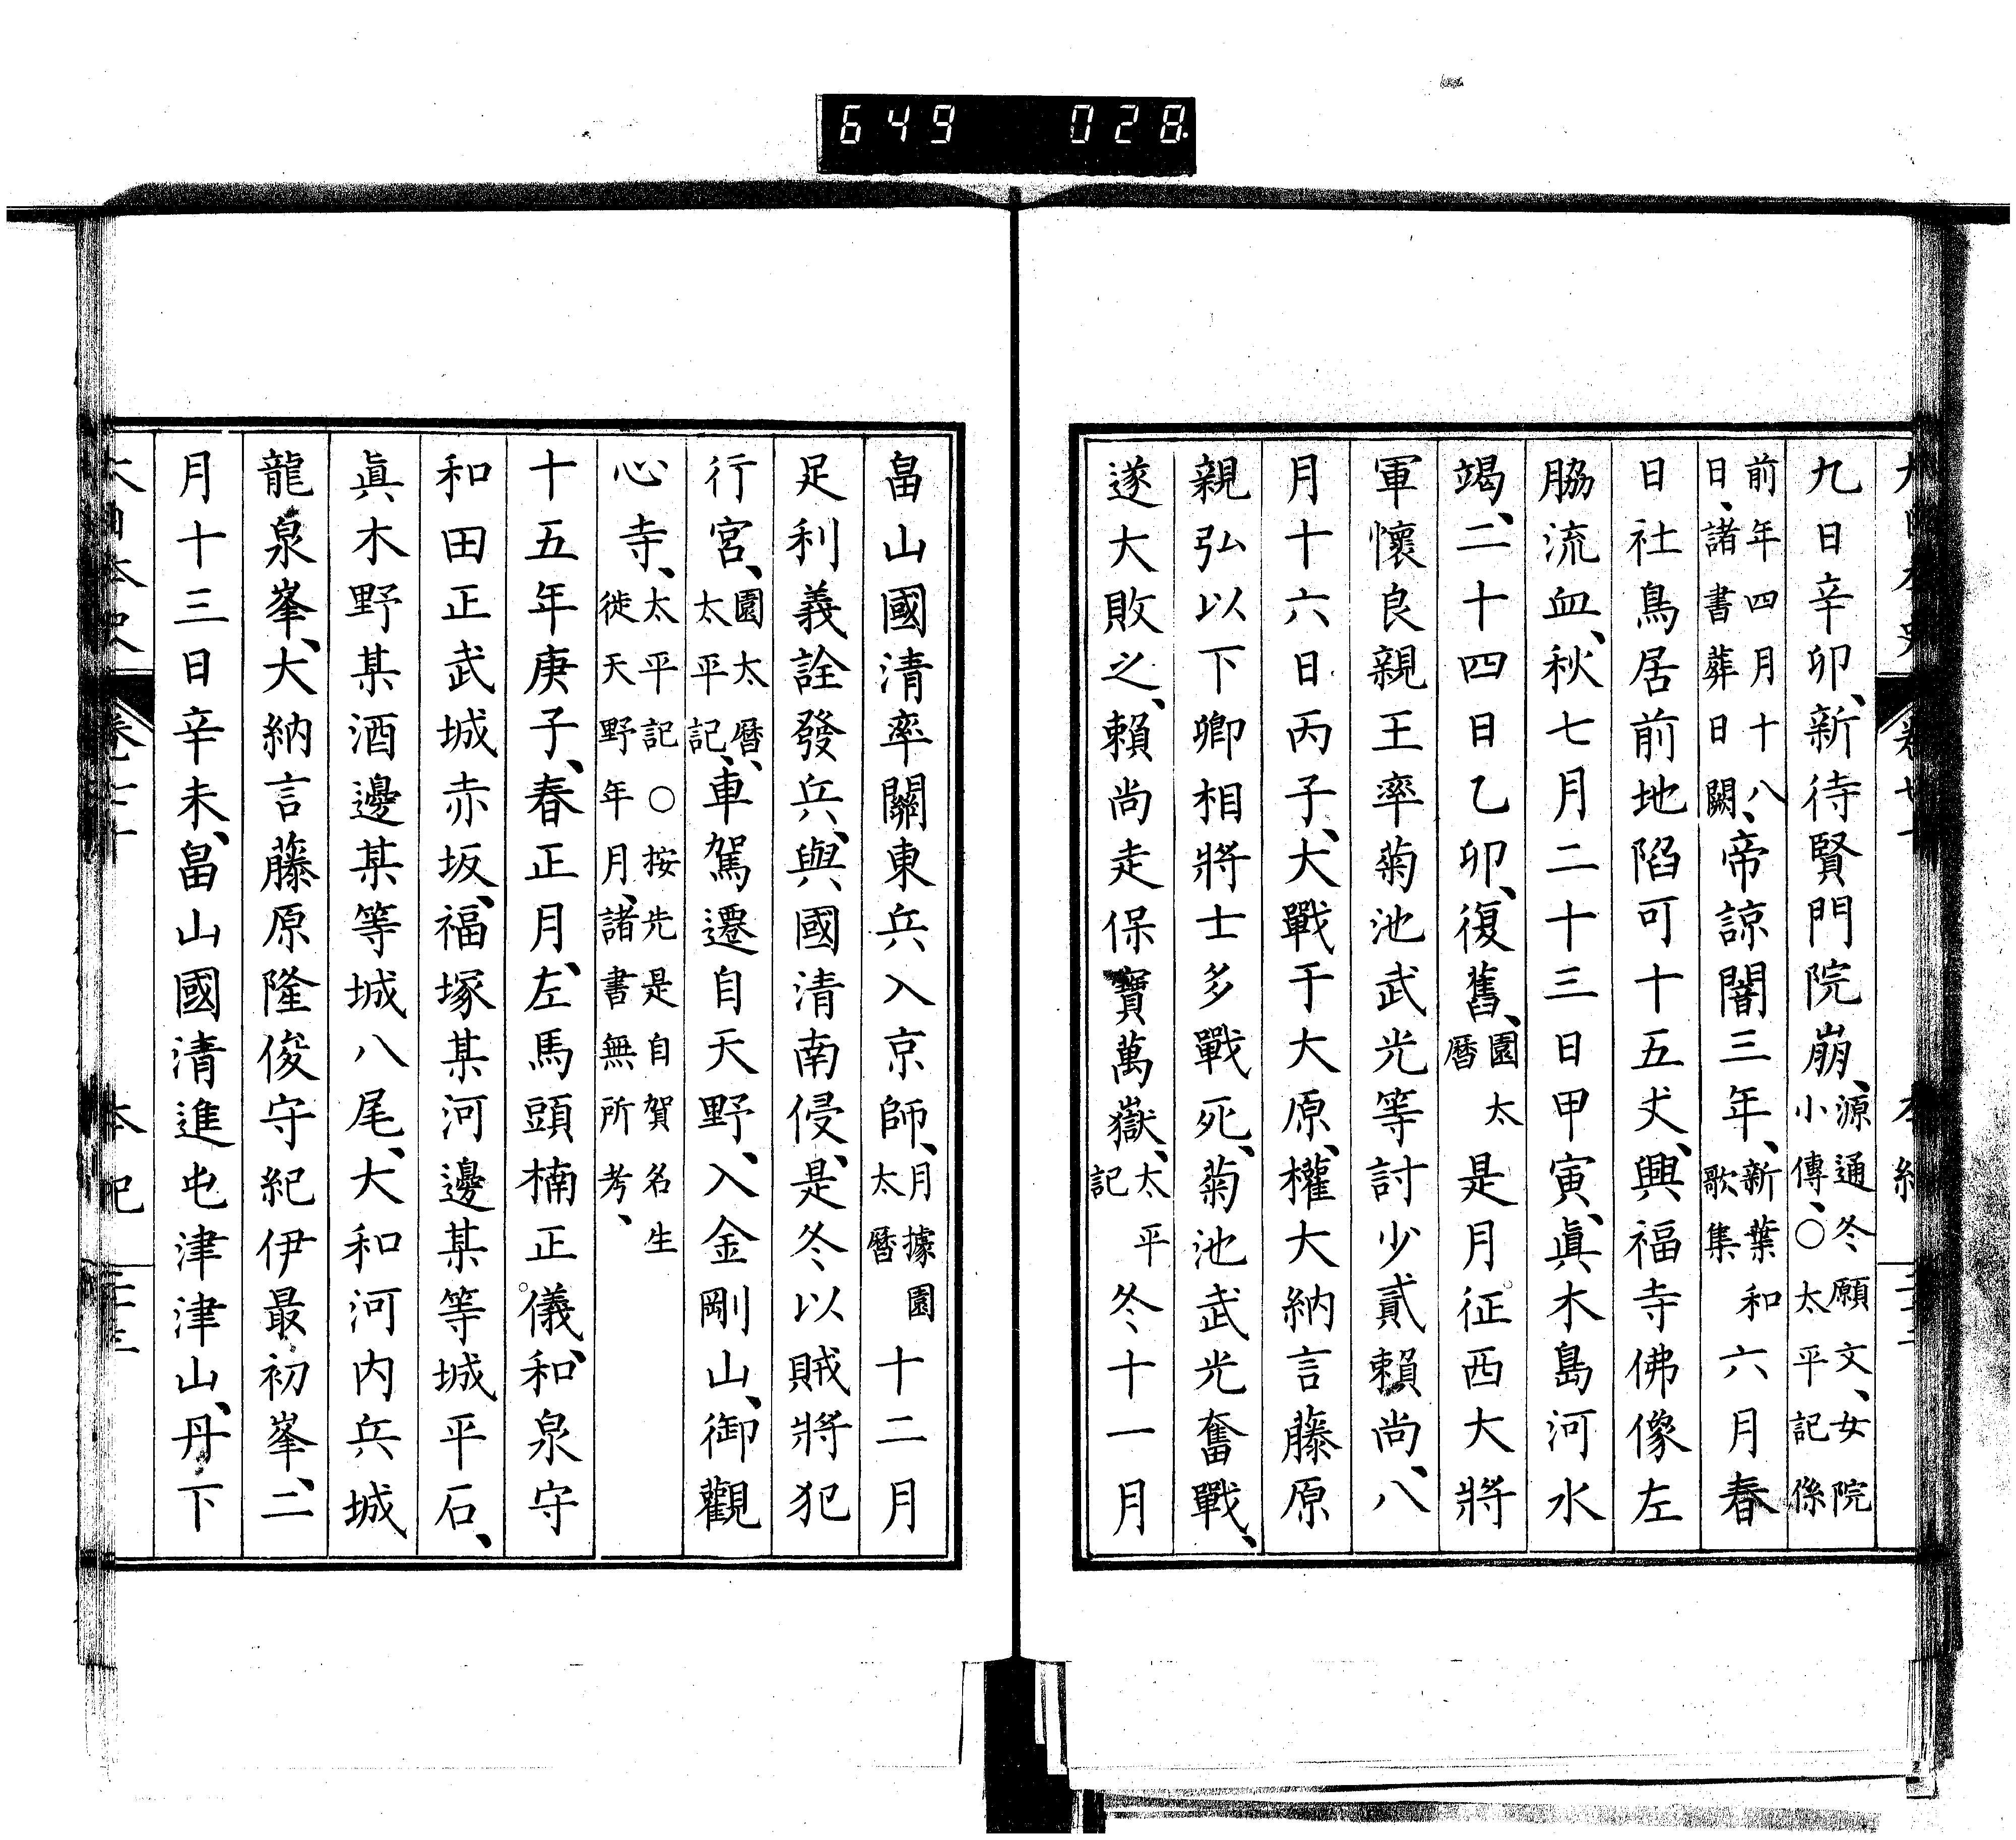 649 028
九日辛卯、新待賢門院崩、源通冬願文、女院小傳、○太平記係
前年四月十八日、諸書葬日闕、帝諒闇三年、新葉和歌集六月春
日社鳥居前地陷可十五丈、興福寺佛像左
脇流血、秋七月二十三日甲寅、眞木島河水
竭、二十四日乙卯、復舊、園太曆是月征西大將
軍懷良親王率菊池武光等討少貳賴尚、八
月十六日丙子、大戰于大原、權大納言藤原
親弘以下卿相將士多戰死、菊池武光奮戰、
遂大敗之、賴尚走保寶萬嶽、太平記冬十一月
畠山國清率關東兵入京師、月據園太曆十二月
足利義詮發兵、與國清南侵、是冬以賊將犯
行宮、園太曆、太平記、車駕遷自天野、入金剛山、御觀
心寺、太平記○按先是自賀名生徙天野年月、諸書無所考、
十五年庚子、春正月、左馬頭楠正儀、和泉守
和田正武城赤坂、福塚某河邊某等城平石、
眞木野某酒邊某等城八尾、大和河内兵城
龍泉峯、大納言藤原隆俊守紀伊最初峯、二
月十三日辛未、畠山國清進屯津津山、丹下
本紀